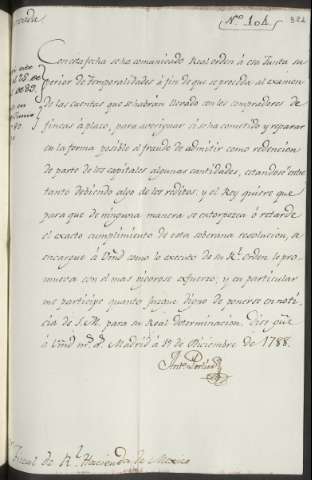 Nº 104
Con esta fecha se ha comunicado Real orden á esa Junta su-
perior de temporalidades á fin de que se proceda al exámen
de las cuentas que se habrán llevado con los compradores de
fincas á plazo, para averiguar si se ha cometido y reparar
en la forma posible el fraude de admitir como redencion
de parte de los capitales algunas cantidades, estandose entre
tanto debiendo algo de los reditos: y el Rey quiere que
para que de ninguna manera se entorpezca ó retarde
el exacto cumplimiento de esta soberana resolucion, se
encargue á Vmd como lo executo de su Rl. Orden lo pro-
mueva con el mas vigoroso esfuerzo; y en particular
me participe quanto juzgue digno de ponerse en noti-
cia de S. M. para su Real determinacion. Dios güe
á Vmd ms. as. Madrid á de Diciembre de 1788.
Antº Porlier
Fiscal de Rl. Hacienda de Mexico